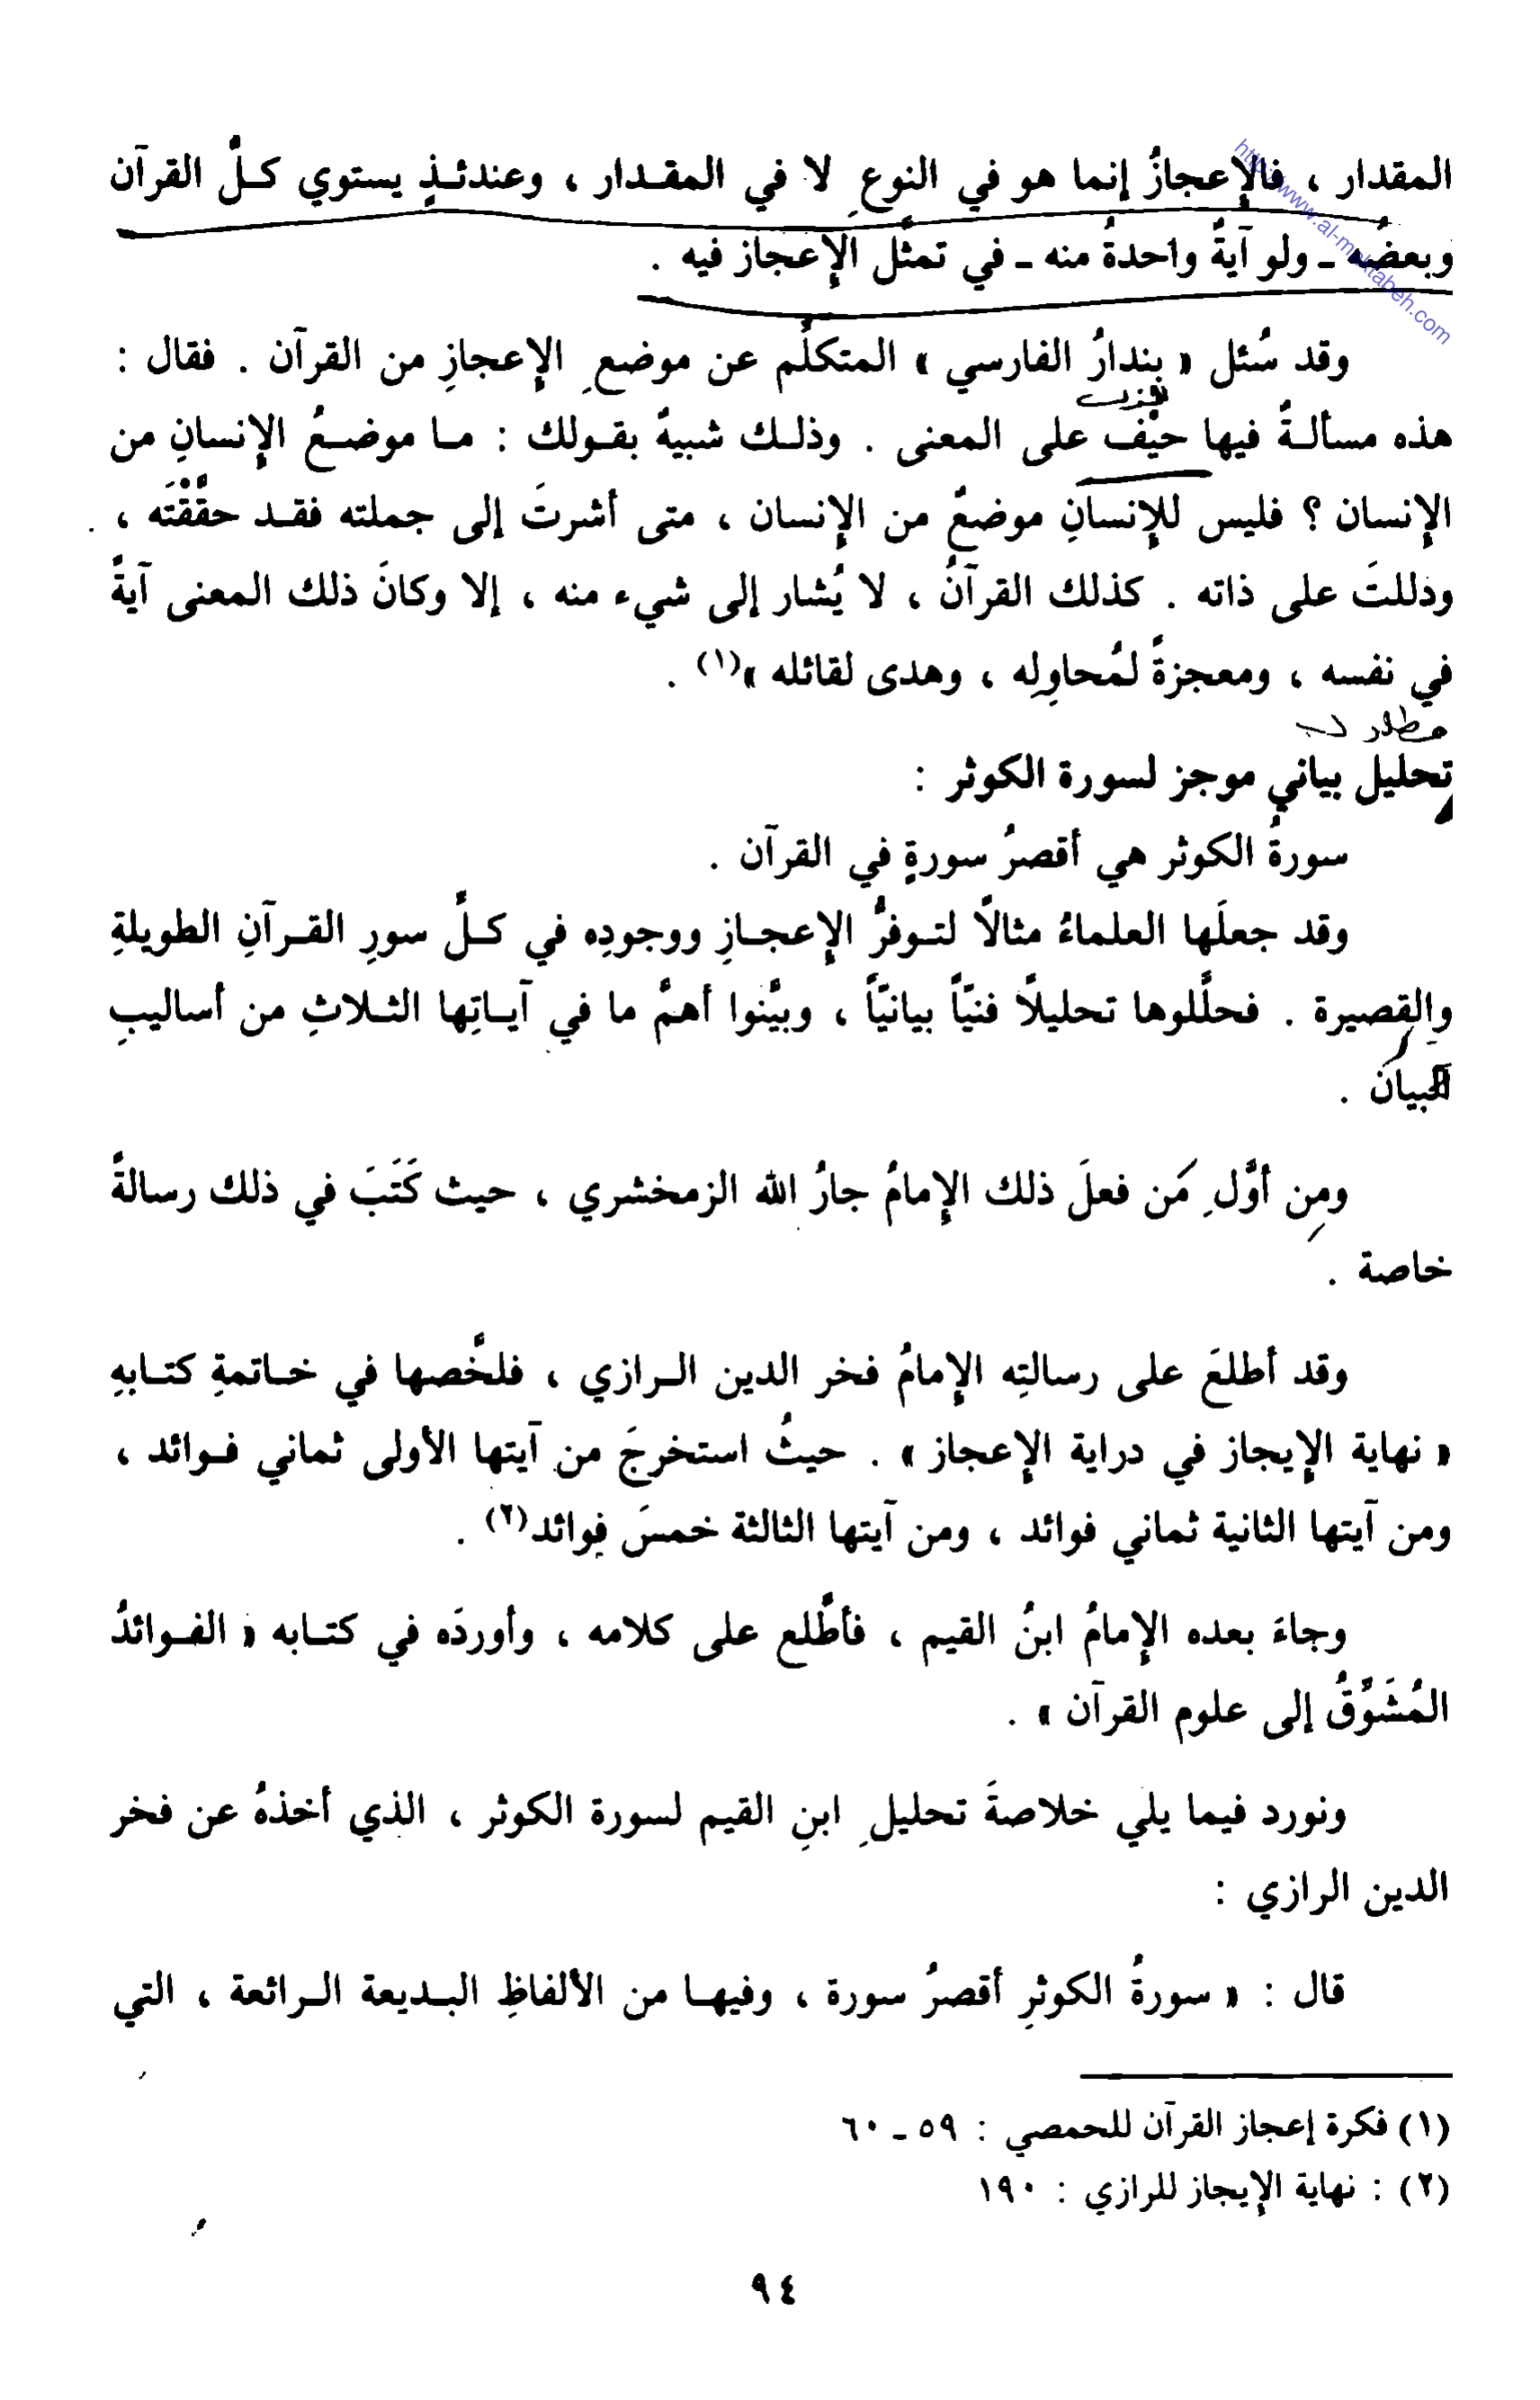 المقدار ، فالإِعجازُ إنما هو في النوعِ لا في المقـدار ، وعندئـذٍ يستوي كـلُّ القرآن
وبعضُه ـ ولو آيةً واحدةً منه ـ في تمثُّل الإِعجاز فيه .
وقد سُئل « بندارُ الفارسي » المتكلِّم عن موضعِ الإِعجازِ من القرآن . فقال :
هذه مسألـةٌ فيها حيْف على المعنى . وذلـك شبيهٌ بقـولك : مـا موضـعُ الإِنسانِ من
الإِنسان ؟ فليس للإِنسانِ موضعٌ من الإِنسان ، متى أشرتَ إلى جملته فقـد حقَّقْتَه ،
ودللتَ على ذاته . كذلك القرآنُ ، لا يُشار إلى شيء منه ، إلا وكانَ ذلك المعنى آيةً
في نفسه ، ومعجزةً لمُحاوِلِه ، وهدى لقائله »(١) .
تحليل بياني موجز لسورة الكوثر :
سورةُ الكوثر هي أقصرُ سورةٍ في القرآن .
وقد جعلَها العلماءُ مثالًا لتـوفرُّ الإِعجـازِ ووجودِه في كـلِّ سورِ القـرآنِ الطويلةِ
والقصيرة . فحلَّلوها تحليلًا فنيّاً بيانيّاً ، وبيَّنوا أهمَّ ما في آيـاتِها الثـلاثِ من أساليبِ
البيان .
ومِن أوَّلِ مَن فعلَ ذلك الإِمامُ جارُ الله الزمخشري ، حيث كَتَبَ في ذلك رسالةً
خاصة .
وقد أطلعَ على رسالتِه الإِمامُ فخر الدين الـرازي ، فلخَّصها في خـاتمةِ كتـابهِ
« نهاية الإِيجاز في دراية الإِعجاز » . حيثُ استخرجَ من آيتها الأولى ثماني فـوائد ،
ومن آيتها الثانية ثماني فوائد ، ومن آيتها الثالثة خمسَ فوائد(٢) .
وجاءَ بعده الإِمامُ ابنُ القيم ، فأطَّلع على كلامه ، وأوردَه في كتـابه « الفـوائدُ
المُشَوِّقُ إلى علوم القرآن » .
ونورد فيما يلي خلاصةَ تحليلِ ابنِ القيم لسورة الكوثر ، الذي أخذهُ عن فخر
الدين الرازي :
قال : « سورةُ الكوثرِ أقصرُ سورة ، وفيهـا من الألفاظِ البـديعة الـرائعة ، التي
(١) فكرة إعجاز القرآن للحمصي : ٥٩ ـ ٦٠
(٢) : نهاية الإِيجاز للرازي : ١٩٠
٩٤
http://www.al-maktabeh.com